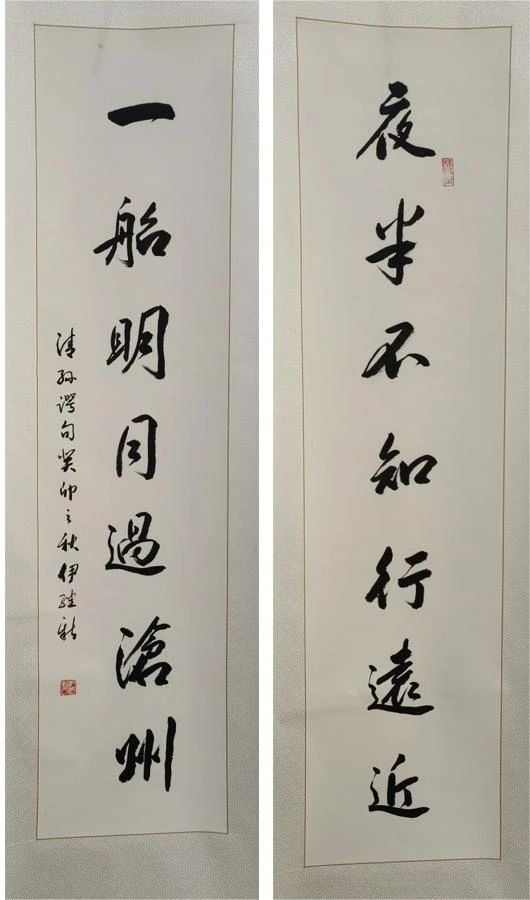 夜半不知行遠近
一船明月過滄州
清孫諤句癸卯之秋伊繼新